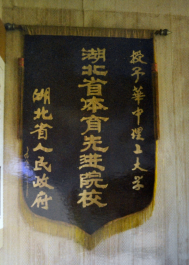 授予華中理工大学
湖北省体育先进院校
湖北省人民政府